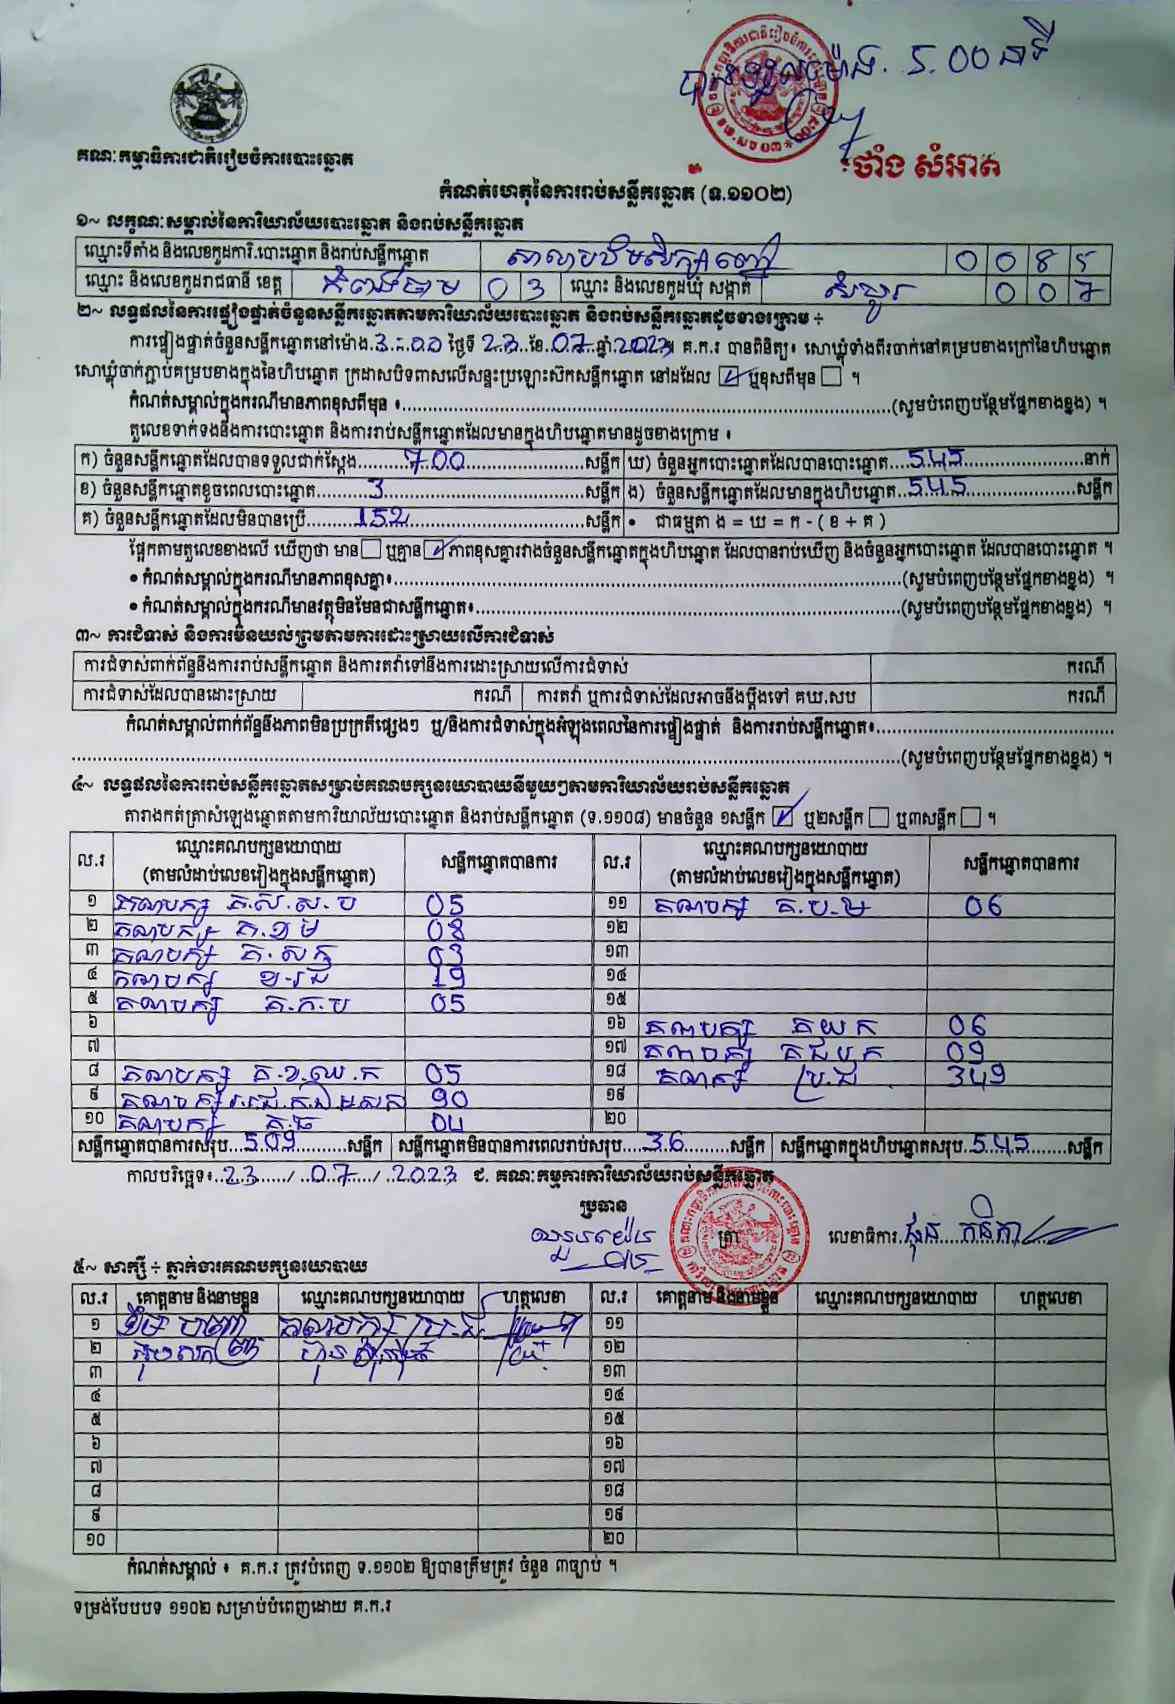 បានចូលម៉ោង. 5.00 នាទី
ថាំង សំអាត
គណៈកម្មាធិការជាតិរៀបចំការបោះឆ្នោត
កំណត់ហេតុនៃការរាប់សន្លឹកឆ្នោត (ទ.១១០២)
១~ លក្ខណៈសម្គាល់នៃការិយាល័យបោះឆ្នោត និងរាប់សន្លឹកឆ្នោត
ឈ្មោះទីតាំង និងលេខកូដការិ.បោះឆ្នោត និងរាប់សន្លឹកឆ្នោត សាលាបឋមសិក្សា 0 0 8 5
ឈ្មោះ និងលេខកូដរាជធានី ខេត្ត កំពង់ចាម 0 3 ឈ្មោះ និងលេខកូដឃុំ សង្កាត់ 0 0 7
២~ លទ្ធផលនៃការផ្ទៀងផ្ទាត់ចំនួនសន្លឹកឆ្នោតតាមការិយាល័យបោះឆ្នោត និងរាប់សន្លឹកឆ្នោតដូចខាងក្រោម ÷
ការផ្ទៀងផ្ទាត់ចំនួនសន្លឹកឆ្នោតនៅម៉ោង.3.00 ថ្ងៃទី 23.ខែ.07.ឆ្នាំ.2023។ គ.ក.រ បានពិនិត្យ៖ សោឃ្លុំទាំងពីរចាក់នៅគម្របខាងក្រៅនៃហិបឆ្នោត
សោឃ្លុំចាក់ភ្ជាប់គម្របខាងក្នុងនៃហិបឆ្នោត ក្រដាសបិទពាសលើសន្ទះប្រឡោះស៊កសន្លឹកឆ្នោត នៅដដែល ☑ ឬខុសពីមុន ☐ ។
កំណត់សម្គាល់ក្នុងករណីមានភាពខុសពីមុន ៖......(សូមបំពេញបន្ថែមផ្នែកខាងខ្នង) ។
តួលេខទាក់ទងនឹងការបោះឆ្នោត និងការរាប់សន្លឹកឆ្នោតដែលមានក្នុងហិបឆ្នោតមានដូចខាងក្រោម ៖
ក) ចំនួនសន្លឹកឆ្នោតដែលបានទទួលជាក់ស្តែង......700......សន្លឹក ឃ) ចំនួនអ្នកបោះឆ្នោតដែលបានបោះឆ្នោត....545......នាក់
ខ) ចំនួនសន្លឹកឆ្នោតខូចពេលបោះឆ្នោត......3......សន្លឹក ង) ចំនួនសន្លឹកឆ្នោតដែលមានក្នុងហិបឆ្នោត..545......សន្លឹក
គ) ចំនួនសន្លឹកឆ្នោតដែលមិនបានប្រើ......152......សន្លឹក • ជាធម្មតា ង = ឃ = ក - ( ខ + គ )
ផ្អែកតាមតួលេខខាងលើ ឃើញថា មាន ☐ ឬគ្មាន ☑ ភាពខុសគ្នារវាងចំនួនសន្លឹកឆ្នោតក្នុងហិបឆ្នោត ដែលបានរាប់ឃើញ និងចំនួនអ្នកបោះឆ្នោត ដែលបានបោះឆ្នោត ។
• កំណត់សម្គាល់ក្នុងករណីមានភាពខុសគ្នា៖......(សូមបំពេញបន្ថែមផ្នែកខាងខ្នង) ។
• កំណត់សម្គាល់ក្នុងករណីមានវត្ថុមិនមែនជាសន្លឹកឆ្នោត៖......(សូមបំពេញបន្ថែមផ្នែកខាងខ្នង) ។
៣~ ការជំទាស់ និងការមិនយល់ព្រមតាមការដោះស្រាយលើការជំទាស់
ការជំទាស់ពាក់ព័ន្ធនឹងការរាប់សន្លឹកឆ្នោត និងការតវ៉ាទៅនឹងការដោះស្រាយលើការជំទាស់ ករណី
ការជំទាស់ដែលបានដោះស្រាយ ករណី ការតវ៉ា ឬការជំទាស់ដែលអាចនឹងប្តឹងទៅ គឃ.សប ករណី
កំណត់សម្គាល់ពាក់ព័ន្ធនឹងភាពមិនប្រក្រតីផ្សេងៗ ឬ/និងការជំទាស់ក្នុងអំឡុងពេលនៃការផ្ទៀងផ្ទាត់ និងការរាប់សន្លឹកឆ្នោត៖......
......(សូមបំពេញបន្ថែមផ្នែកខាងខ្នង) ។
៤~ លទ្ធផលនៃការរាប់សន្លឹកឆ្នោតសម្រាប់គណបក្សនយោបាយនីមួយៗតាមការិយាល័យរាប់សន្លឹកឆ្នោត
តារាងកត់ត្រាសំឡេងឆ្នោតតាមការិយាល័យបោះឆ្នោត និងរាប់សន្លឹកឆ្នោត (ទ.១១០៨) មានចំនួន ១សន្លឹក ☑ ឬ២សន្លឹក ☐ ឬ៣សន្លឹក ☐ ។
ល.រ ឈ្មោះគណបក្សនយោបាយ (តាមលំដាប់លេខរៀងក្នុងសន្លឹកឆ្នោត) សន្លឹកឆ្នោតបានការ ល.រ ឈ្មោះគណបក្សនយោបាយ (តាមលំដាប់លេខរៀងក្នុងសន្លឹកឆ្នោត) សន្លឹកឆ្នោតបានការ
១ គណបក្ស គ.ស.ស.ប 05 ១១ គណបក្ស គ.ប.ឧ 06
២ គណបក្ស គ.ខ.ម 08 ១២
៣ គណបក្ស គ.សក្ 03 ១៣
៤ គណបក្ស ខ.រជ 19 ១៤
៥ គណបក្ស គ.ក.ប 05 ១៥
៦ ១៦ គណបក្ស គយក 06
៧ ១៧ គណបក្ស គជបក 09
៨ គណបក្ស គ.ខ.ឈ.ក 05 ១៨ គណបក្ស ប្រ.ជ 349
៩ គណបក្ស 90 ១៩
១០ គណបក្ស គ.ធ 04 ២០
សន្លឹកឆ្នោតបានការសរុប...509......សន្លឹក សន្លឹកឆ្នោតមិនបានការពេលរាប់សរុប....36......សន្លឹក សន្លឹកឆ្នោតក្នុងហិបឆ្នោតសរុប..545......សន្លឹក
កាលបរិច្ឆេទ៖..23....../..07..../..2023 ជ. គណៈកម្មការការិយាល័យរាប់សន្លឹកឆ្នោត
ប្រធាន
ត្រា លេខាធិការ. ផុន កនិកា
៥~ សាក្សី ÷ ភ្នាក់ងារគណបក្សនយោបាយ
ល.រ គោត្តនាម និងនាមខ្លួន ឈ្មោះគណបក្សនយោបាយ ហត្ថលេខា ល.រ គោត្តនាម និងនាមខ្លួន ឈ្មោះគណបក្សនយោបាយ ហត្ថលេខា
១ គណបក្ស ប្រ.ជ ១១
២ ១២
៣ ១៣
៤ ១៤
៥ ១៥
៦ ១៦
៧ ១៧
៨ ១៨
៩ ១៩
១០ ២០
កំណត់សម្គាល់ ៖ គ.ក.រ ត្រូវបំពេញ ទ.១១០២ ឱ្យបានត្រឹមត្រូវ ចំនួន ៣ច្បាប់ ។
ទម្រង់បែបបទ ១១០២ សម្រាប់បំពេញដោយ គ.ក.រ